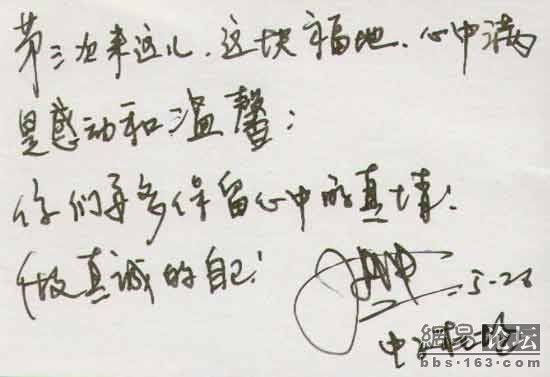 第三次来这儿，这块福地，心中满
是感动和温馨；
你们要多保留心中的真情！
做真诚的自己！
5-28
網易 论坛
bbs·163.com